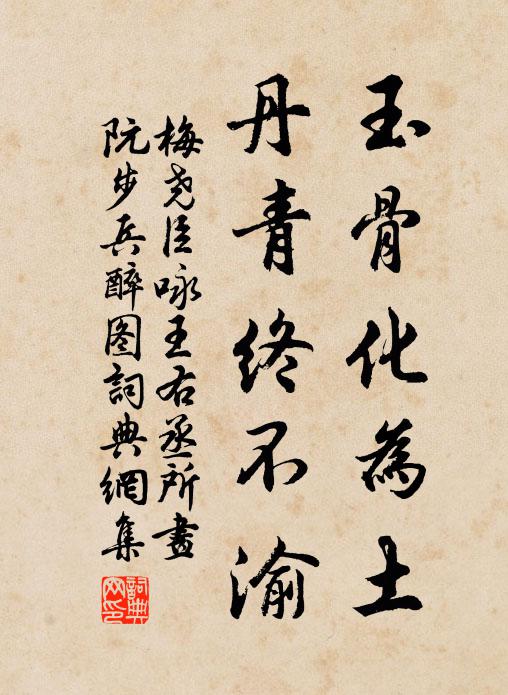 玉骨化為土
丹青終不渝
梅堯臣咏王右丞所畫
阮步兵醉图詞典網集
詞典网印